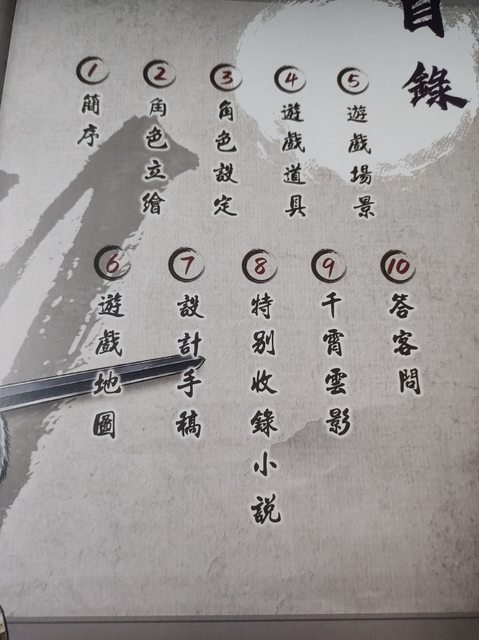 目錄
1
簡序
2
角色立繪
3
角色設定
4
遊戲道具
5
遊戲場景
6
遊戲地圖
7
設計手稿
8
特別收錄小説
9
千霄雲影
10
答客問